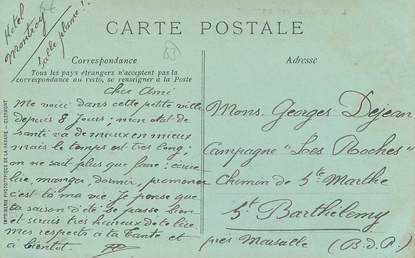 Hotel
Montjoy
Salle pleine !
6€
CARTE POSTALE
Correspondance
Tous les pays étrangers n'acceptent pas la
correspondance au recto, se renseigner à la Poste
Adresse
63
Cher Ami
Me voici dans cette petite ville
depuis 8 Jours ; mon état de
santé va de mieux en mieux
mais le temps est très long ;
on ne sait plus que faire : écrire
lire, manger, dormir, promener
c'est là ma vie. Je pense que
ta saison d'été se passe bien
et serais très heureux de te lire.
Mes respects à ta Tante et
à bientôt.
Mons. Georges Dejean
Campagne "Les Roches"
Chemin de Ste Marthe
St Barthélemy
près Marseille (B.d.R)
IMPRIMERIE PHOTOTYPIQUE DE LA - CLERMONT